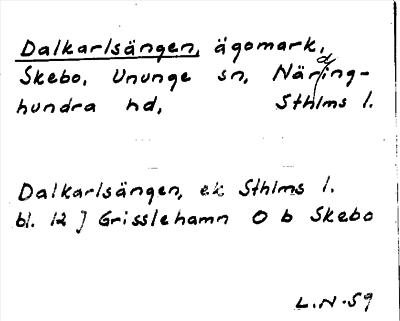 Dalkarlsängen, ägomark,
Skebo, Ununge sn, Näring-
hundra hd, Sthlms l.
Dalkarlsängen, ek Sthlms l.
bl. 12 J Grisslehamn O b Skebo
L.N-59